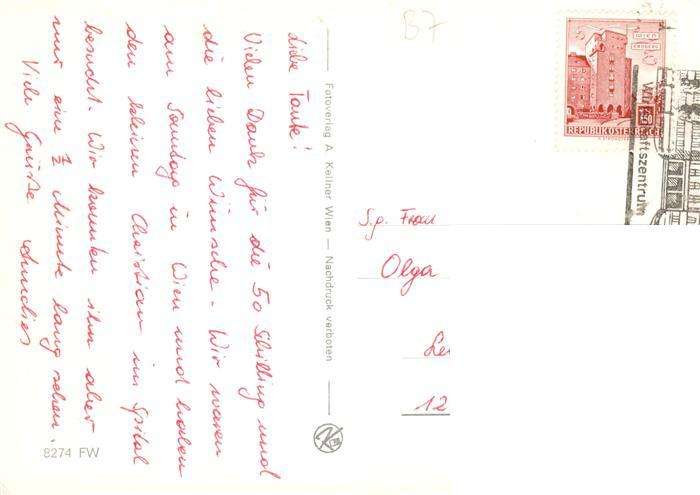 Liebe Tante!
Vielen Dank für die 50 Schilling und
die lieben Wünsche. Wir waren
am Sonntag in Wien und haben
den kleinen Christian im Spital
besucht. Wir konnten ihn aber
nur eine ½ Minute lang sehen.
Viele Grüsse
Fotoverlag A. Kellner Wien — Nachdruck verboten
8274 FW
B7
WIEN
ERDBERG
S 1.50
REPUBLIK ÖSTERREICH
S.g. Frau
Olga
Le
12